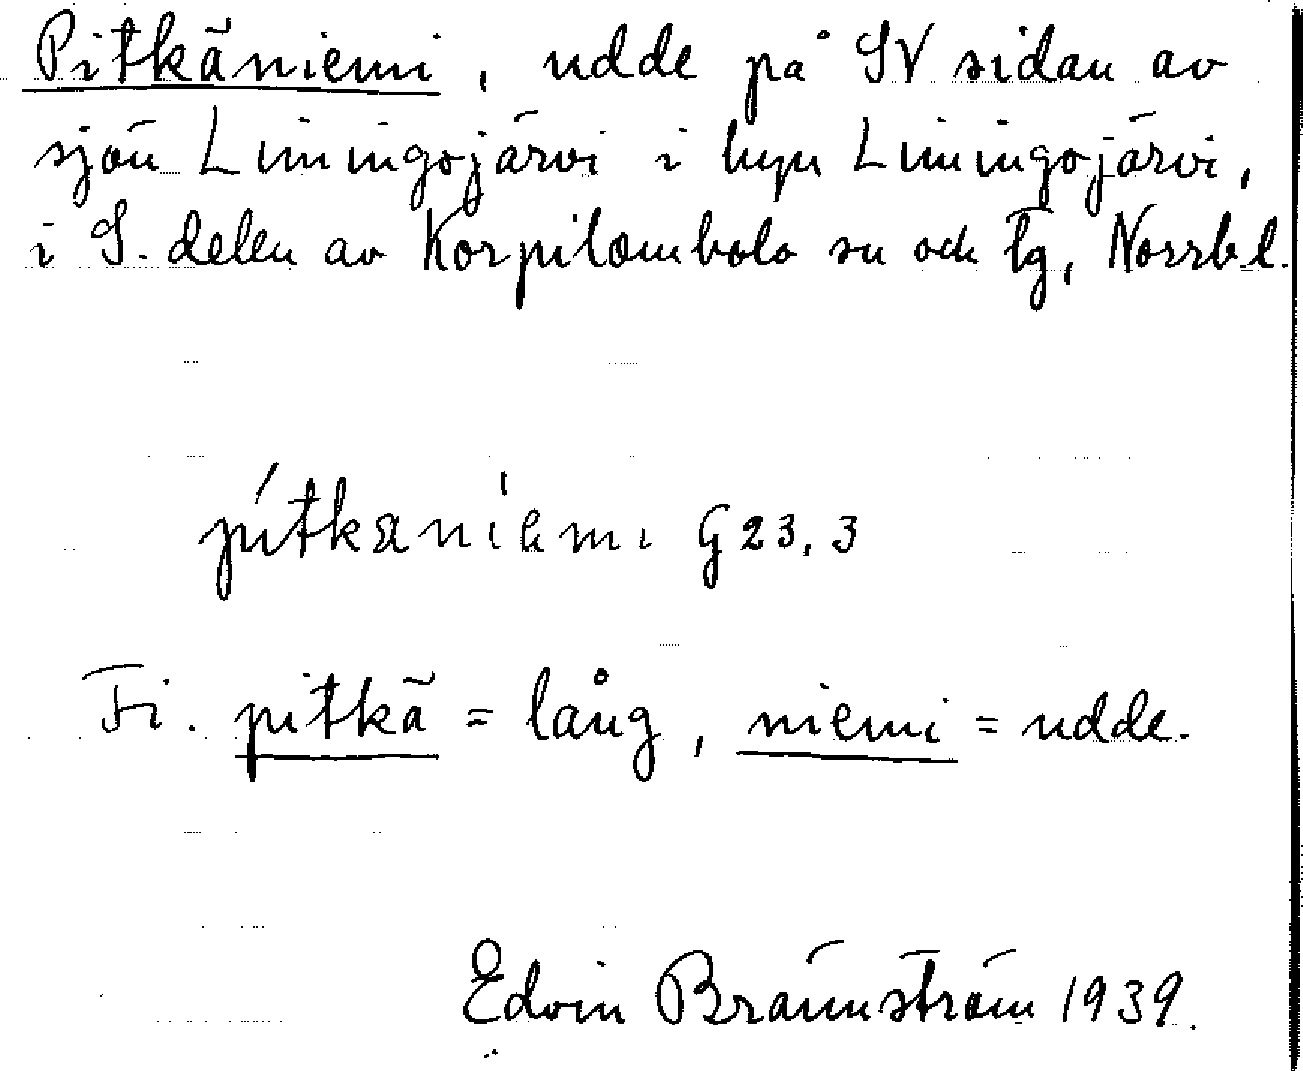 Pitkäniemi, udde på SV sidan av
sjön Liiningojärvi i byn Liiningojärvi,
i S. delen av Korpilombolo sn och tg, Norrb.l.
pítkäniemi G 23,3
Fi. pitkä = lång, niemi = udde.
Edvin Brännström 1939.